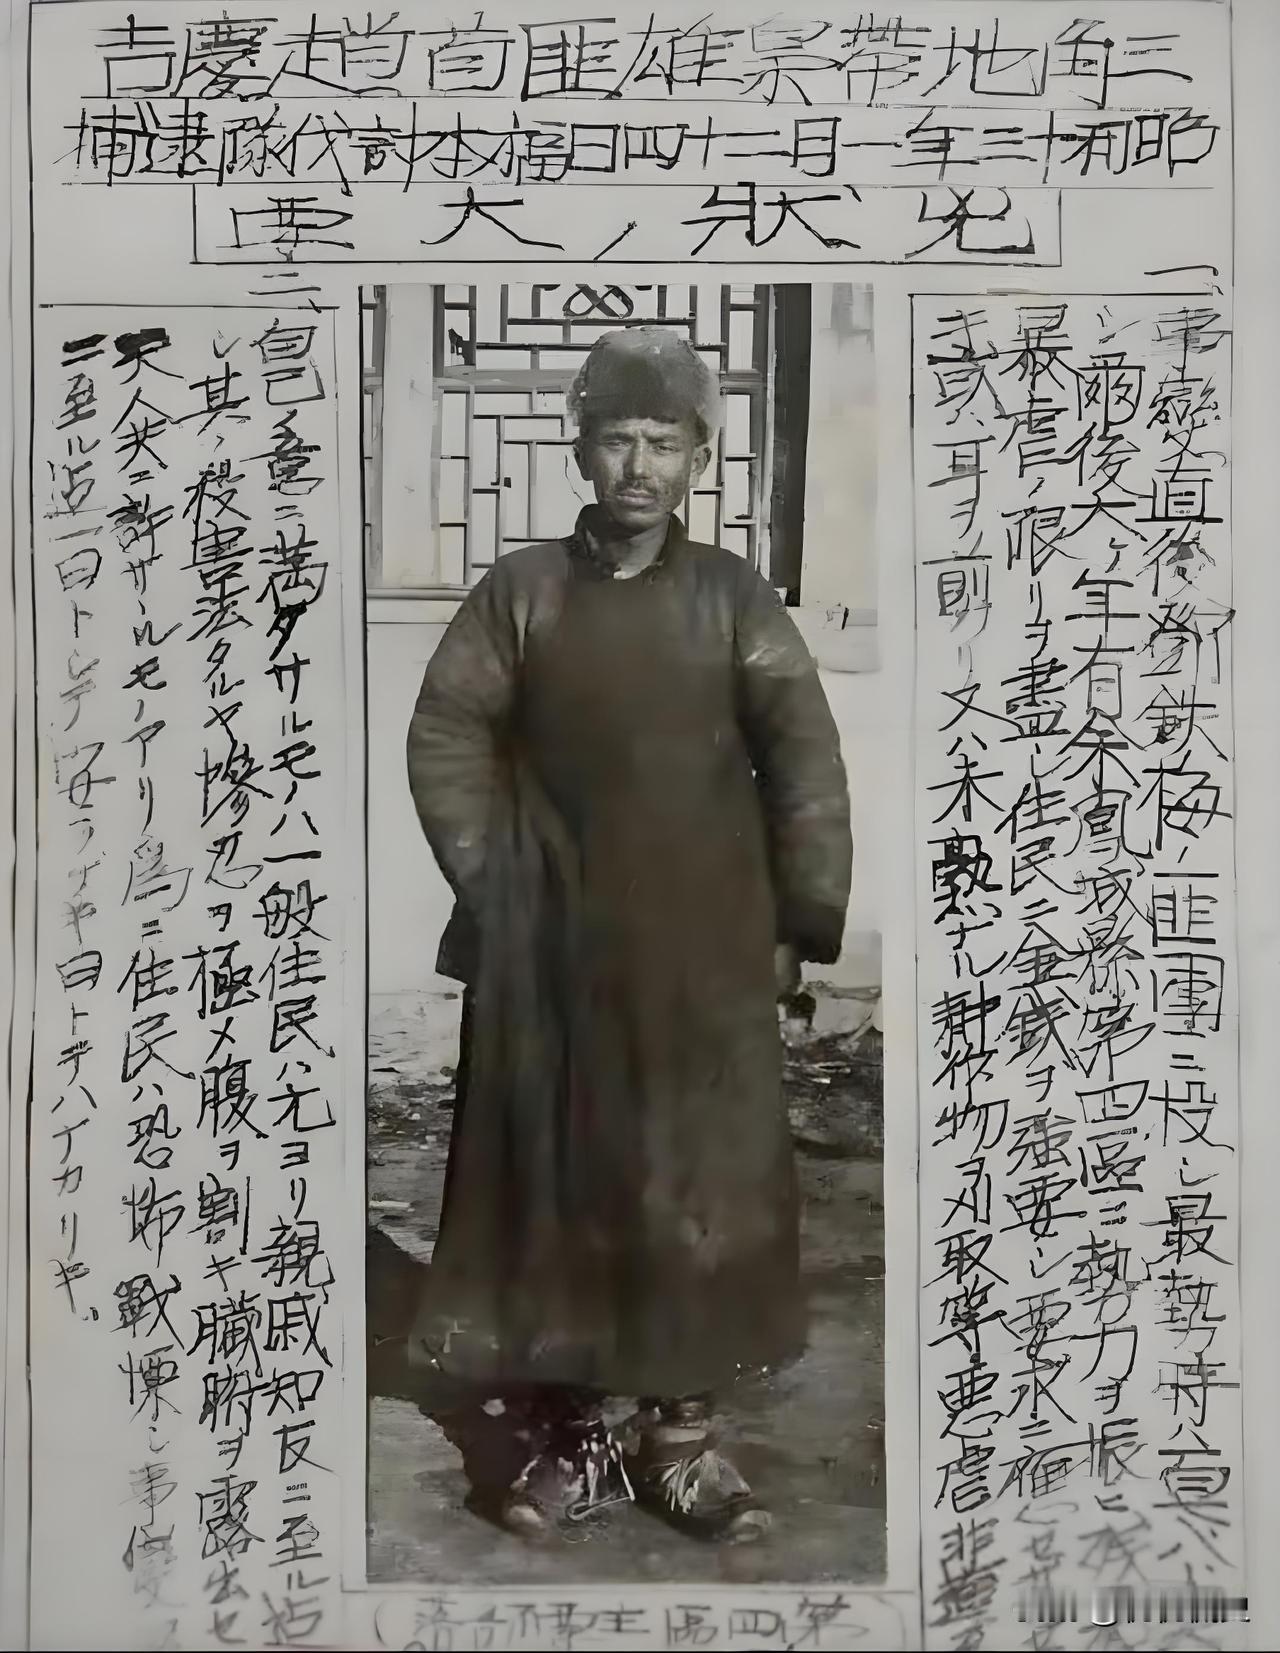 三角地帯梟雄匪首趙慶吉
昭和十三年一月二十四日福本討伐隊逮捕
兇状ノ大要
一、
事變直後鄧鉄梅ノ匪団ニ投シ最勢時ハ
シ爾後六ヶ年有余鳳城縣第四區ニ勢力ヲ振ヒ
暴虐ノ限リヲ盡シ住民ニ金銭ヲ強要シ要求ニ
耳ヲ剪リ又ハ未熟ナル耕作物ヲ刈取等悪虐非
二、
自己ノ意ニ満タサルモノハ一般住民ハ元ヨリ親戚知友ニ至ル迄
シ其ノ殺害法タルヤ惨忍ヲ極メ腹ヲ割キ臓腑ヲ露出セ
天人共ニ許サルモノアリ為ニ住民ハ恐怖戦慄シ事変
ニ至ル迄一日トシテ
第四區